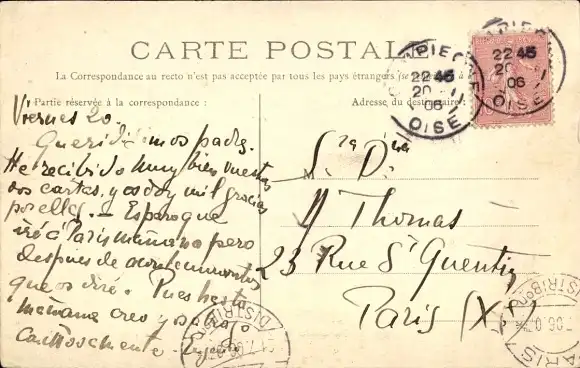 CARTE POSTALE
La Correspondance au recto n'est pas acceptée par tous les pays étrangers (se
Partie réservée à la correspondance :
Adresse du destinataire :
Viernes 20.
Queridísimos padres.
He recibido muy bien vuestras
dos cartas, y os doy mil gracias
por ellas. — Espero que
iré á Paris mañana pero
despues de
que os diré. Pues hasta
mañana creo y os
cariñosamente
M
Thomas
23 Rue St Quentin
Paris (X
COMPIEGNE
22 45
20 - 1
06
OISE
22 45
20 - 1
06
OISE
PARIS
DISTRIBON
DISTRIBON